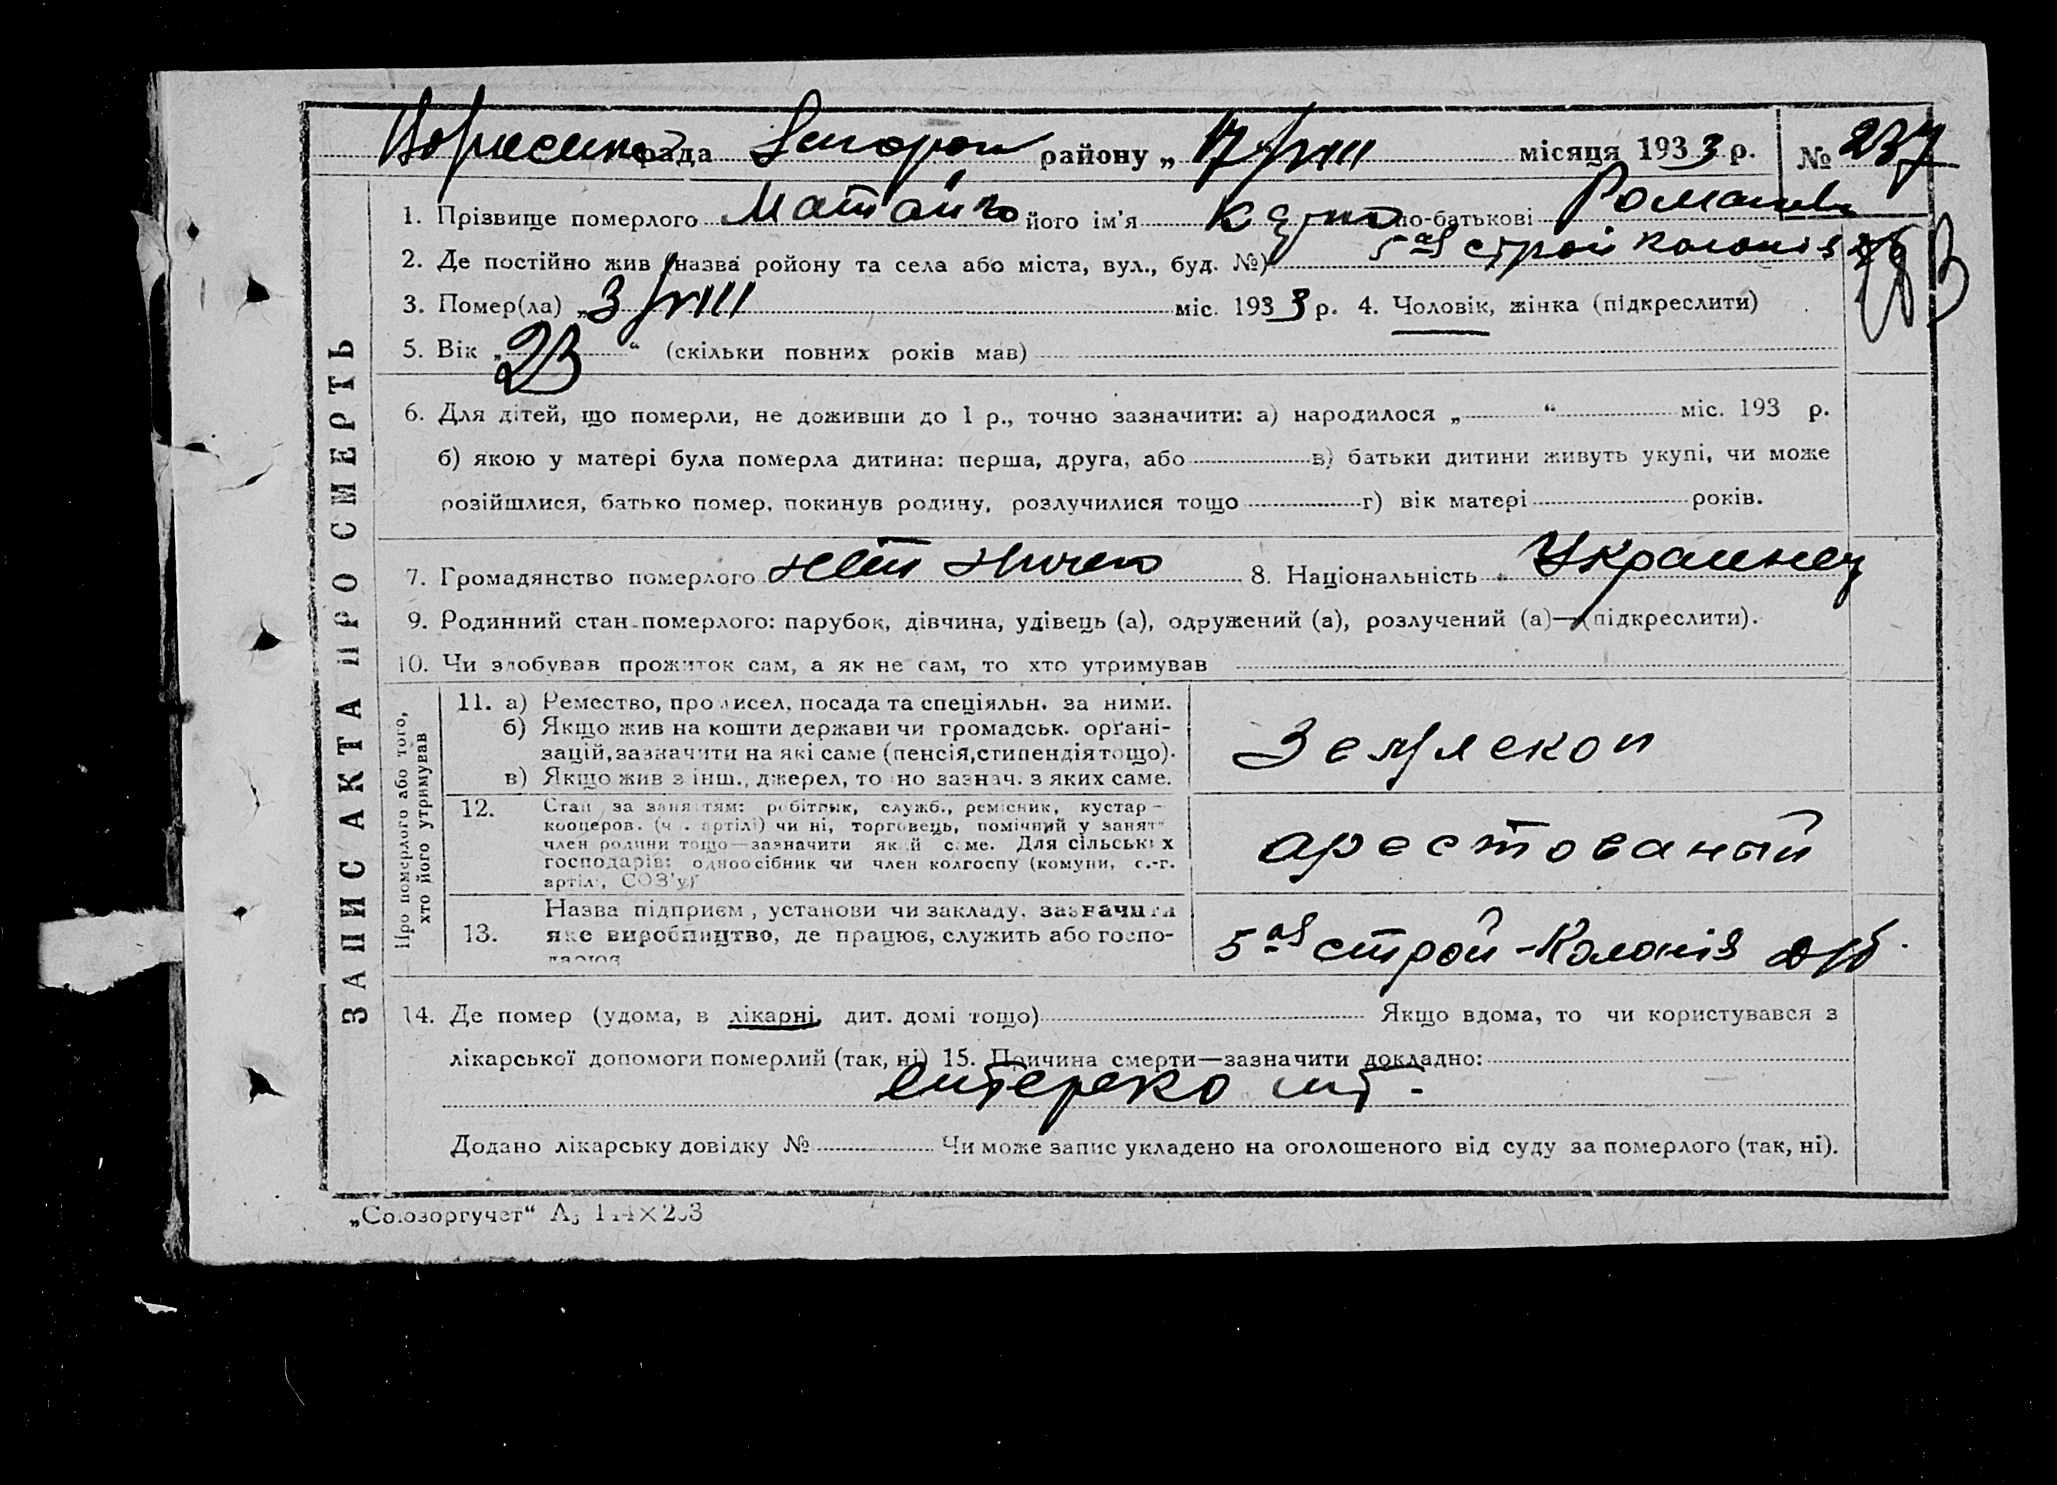 рада Запорож району „ 17 /VIII місяця 1933 р. № 237
1. Прізвище померлого його ім'я по-батькові Романов
2. Де постійно жив (назва ройону та села або міста, вул., буд. №) 5ая строй колонія
3. Помер(ла) „ 3 /VIII міс. 1933 р. 4. Чоловік, жінка (підкреслити)
5. Вік „ 23 “ (скільки повних років мав)
6. Для дітей, що померли, не доживши до 1 р., точно зазначити: а) народилося „ “ міс. 193 р.
б) якою у матері була померла дитина: перша, друга, або в) батьки дитини живуть укупі, чи може
розійшлися, батько помер, покинув родину, розлучилися тощо г) вік матері років.
7. Громадянство померлого 8. Національність Украинец
9. Родинний стан померлого: парубок, дівчина, удівець (а), одружений (а), розлучений (а)—(підкреслити).
10. Чи здобував прожиток сам, а як не сам, то хто утримував
ЗАПИС АКТА ПРО СМЕРТЬ
Про померлого або того,
хто його утримував
11. а) Ремество, промисел, посада та спеціяльн. за ними.
б) Якщо жив на кошти держави чи громадськ. орґані-
зацій, зазначити на які саме (пенсія, стипендія тощо).
в) Якщо жив з інш., джерел, точно зазнач. з яких саме.
Землекоп
12. Стан за заняттям: робітник, служб., ремісник, кустар—
кооперов. (чл. артілі) чи ні, торговець, помічний у занятт
член родини тощо—зазначити який саме. Для сільських
господарів: одноосібник чи член колгоспу (комуни, с.-г.
артілі, СОЗ'у)
арестованый
13. Назва підприєм, установи чи закладу, зазначити
яке виробництво, де працює, служить або госпо-
дарює
5ая строй-Колонія
14. Де помер (удома, в лікарні, дит. домі тощо) Якщо вдома, то чи користувався з
лікарської допомоги померлий (так, ні) 15. Причина смерти—зазначити докладно:
ентероколит.
Додано лікарську довідку № Чи може запис укладено на оголошеного від суду за померлого (так, ні).
„Союзоргучет“